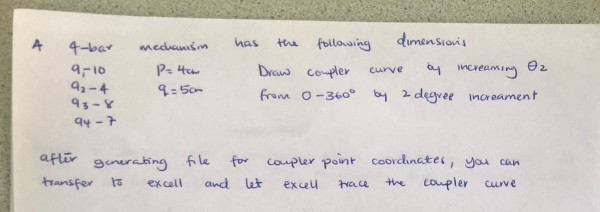 A 4-bar mechanism has the following dimensions
a1-10 P=4cm Draw coupler curve by increaming θ2
a2-4 q=5cm from 0-360° by 2 degree increament
a3-8
a4-7
after generating file for coupler point coordinates, you can
transfer to excell and let excell trace the coupler curve